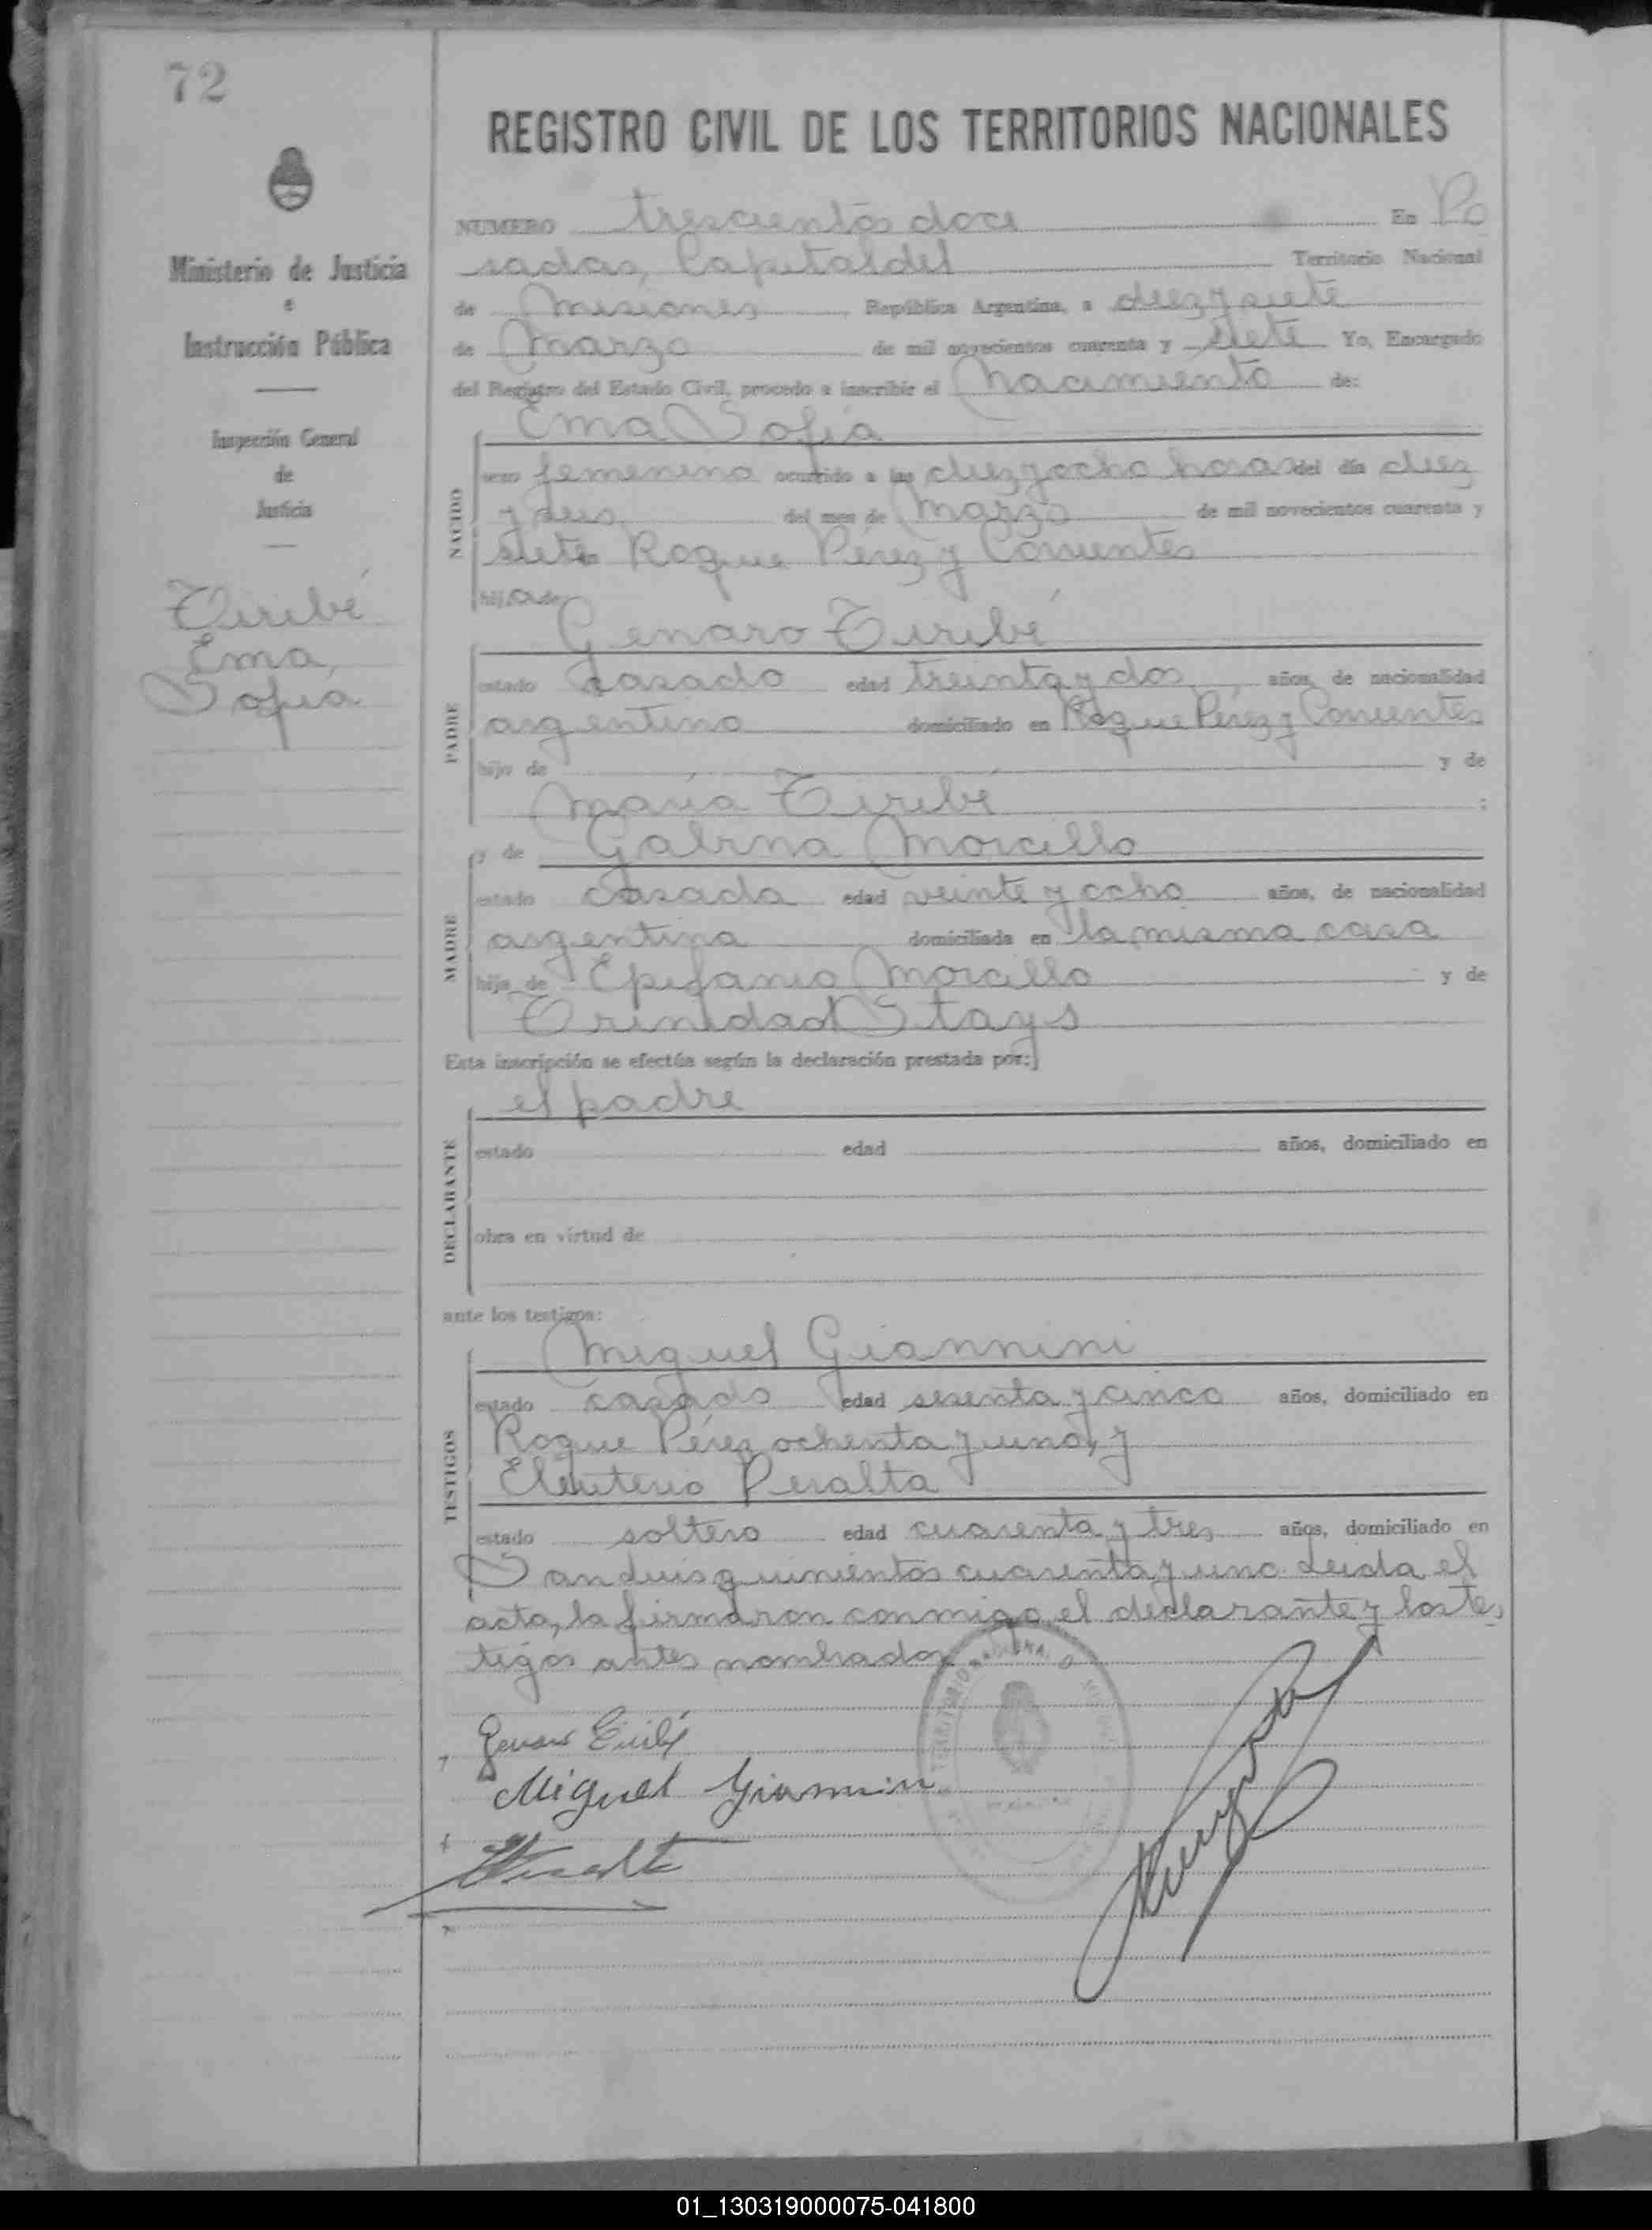 72
REGISTRO CIVIL DE LOS TERRITORIOS NACIONALES
Ministerio de Justicia
e
Instrucción Pública
Inspección General
de
Justicia
Tiribé
Ema,
Sofia
NUMERO trescientos doce En Po
sadas, Capital del Territorio Nacional
de Misiones República Argentina, a diez y siete
de Marzo de mil novecientos cuarenta y siete Yo, Encargado
del Registro del Estado Civil, procedo a inscribir el Nacimiento de:
Ema Sofia
NACIDO
sexo femenino ocurrido a las diez y ocho horas del día diez
y seis del mes de Marzo de mil novecientos cuarenta y
siete Roque Pérez y Corrientes
hija de:
Genaro Tiribé
PADRE
estado casado edad treinta y dos años, de nacionalidad
argentino domiciliado en Roque Pérez y Corrientes
hijo de y de
María Tiribé ;
y de Galrina Morcillo
MADRE
estado casada edad veinte y ocho años, de nacionalidad
argentina domiciliada en la misma casa
hija de Epifanio Morcillo y de
Trinidad Stays
Esta inscripción se efectúa según la declaración prestada por:
el padre
DECLARANTE
estado edad años, domiciliado en
obra en virtud de
ante los testigos:
Miguel Giannini
TESTIGOS
estado casado edad sesenta y cinco años, domiciliado en
Roque Pérez ochenta y uno, y
Eleuterio Peralta
estado soltero edad cuarenta y tres años, domiciliado en
San Luis quinientos cuarenta y uno. Leida el
acta, la firmaron conmigo el declarante y los tes
tigos antes nombrados
Genaro Tiribé
Miguel Giannini
01_130319000075-041800